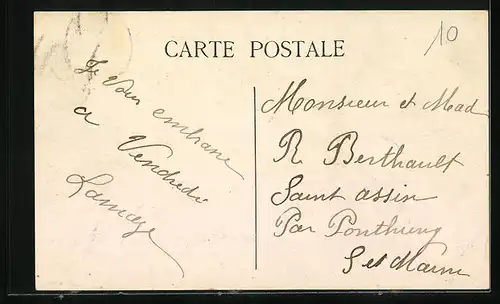 CARTE POSTALE
10
Je vous embrasse
a Vendredi
Monsieur et Mad
R Berthault
Saint assin
Par Ponthierry
S et Marne